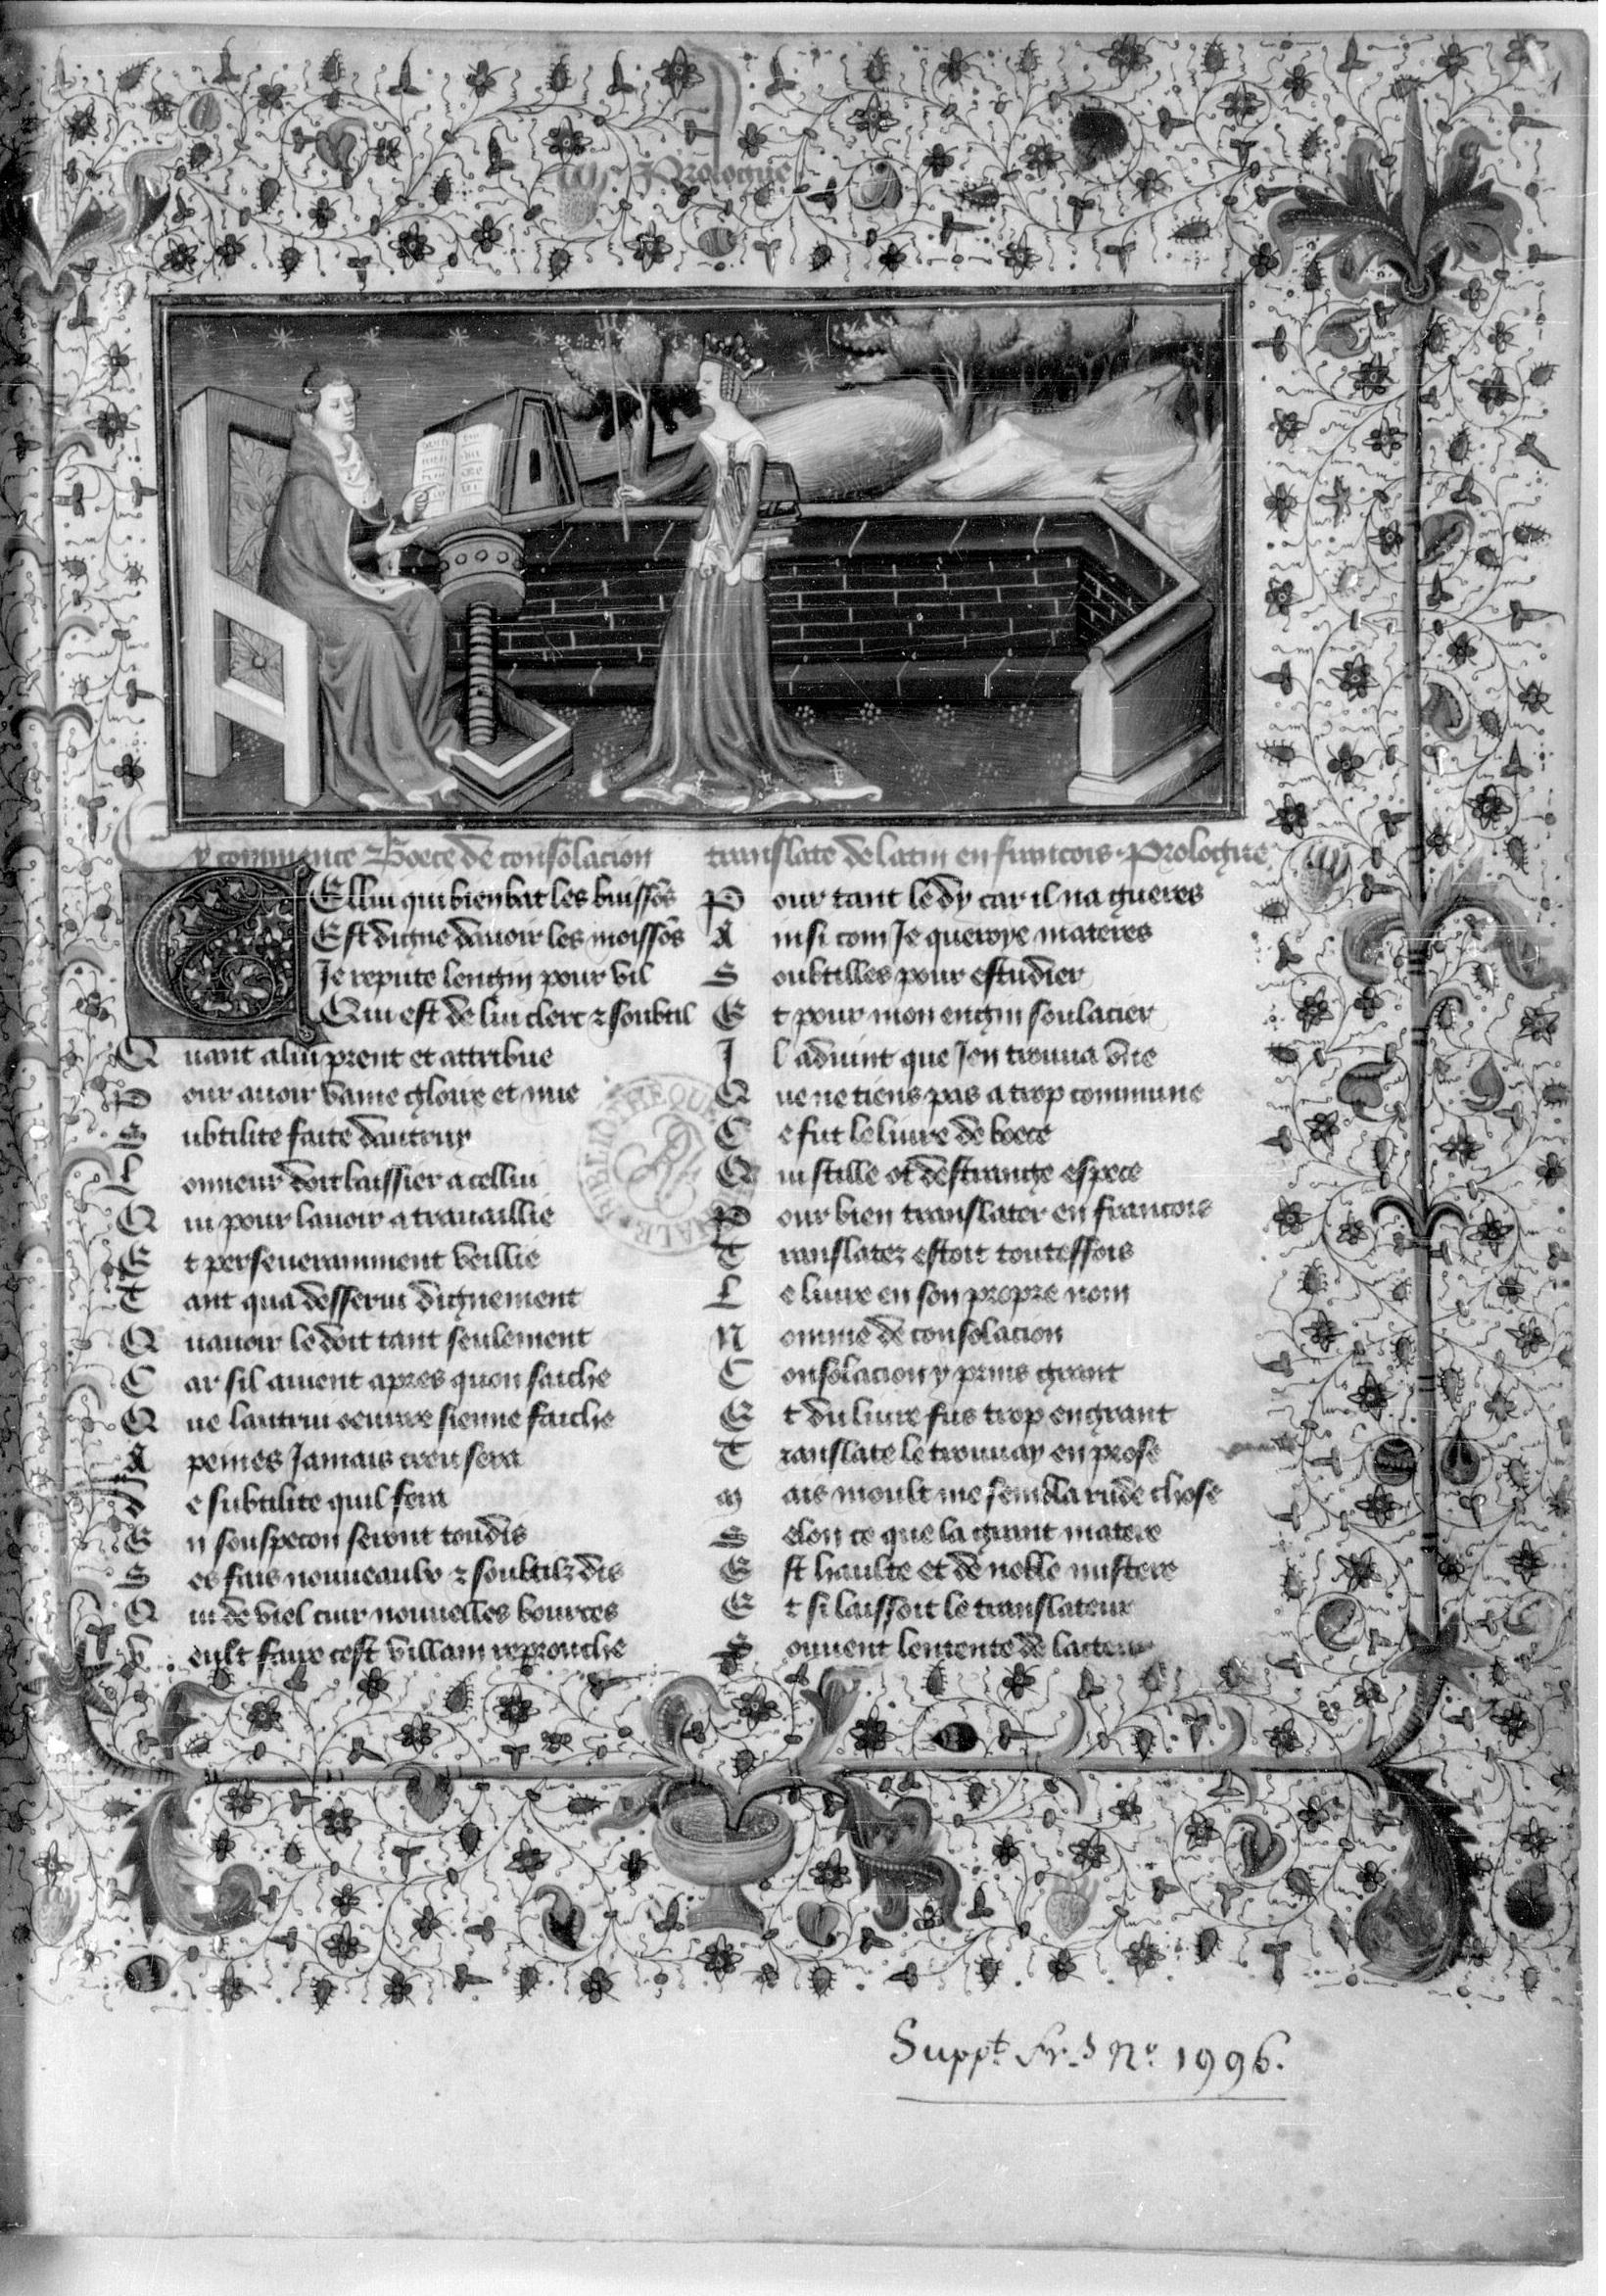 Prologue
Cy commence Boece de consolacion translate de latin en francois. Prologue
Cellui qui bien bat les buissõs
Est digne dauoir les moissõs
Je repute lengin pour vil
Qui est de lui clerc ⁊ soubtil
Quant a lui prent et attribue
Pour auoir vaine gloire et nue
Subtilite faite dautruy
Lonneur doit laissier a cellui
Qui pour lauoir a trauaillie
Et perseueramment veillie
Tant qua desserui dignement
Quauoir le doit tant seulement
Car sil auient apres quon saiche
Que lautrui oeuure sienne faiche
A peines Jamais creu sera
de subtilite quil fera
En souspecon seront toudis
Ses fais nouueaulx ⁊ soubtilz dis
Qui de viel cuir nouuelles bources
veult faire cest villain reprouche
Pour tant le dy car il na gueres
Ainsi com Je queroye materes
Soubtilles pour estudier
Et pour mon engin soulacier
Il aduint que Jen trouua vne
Que ne tiens pas a trop commune
Ce fut le liure de boece
Qui stille ot destrange espece
Pour bien translater en francois
Translatez estoit touteffois
Le liure en son propre nom
Nomme de consolacion
Consolacion y prins grant
Et du liure fus trop engrant
Translate le trouuay en prose
mais moult me sembla rude chose
Selon ce que la grant matere
Est haulte et de noble mistere
Et si laissoit le translateur
Souuent lentente de lacteur
BIBLIOTHEQUE
Suppt. Fr.s No. 1996.